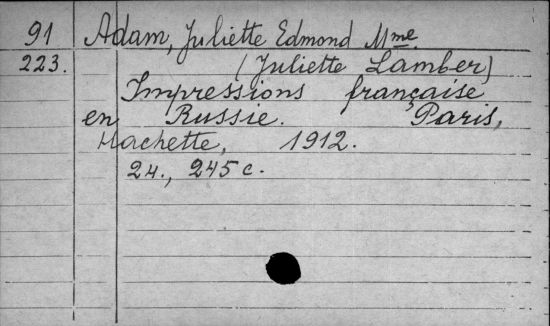 91 Adam, Juliette Edmond Mme.
223. (Juliette Lamber)
Impressions française
en Russie. Paris,
Hachette, 1912.
24., 245 c.